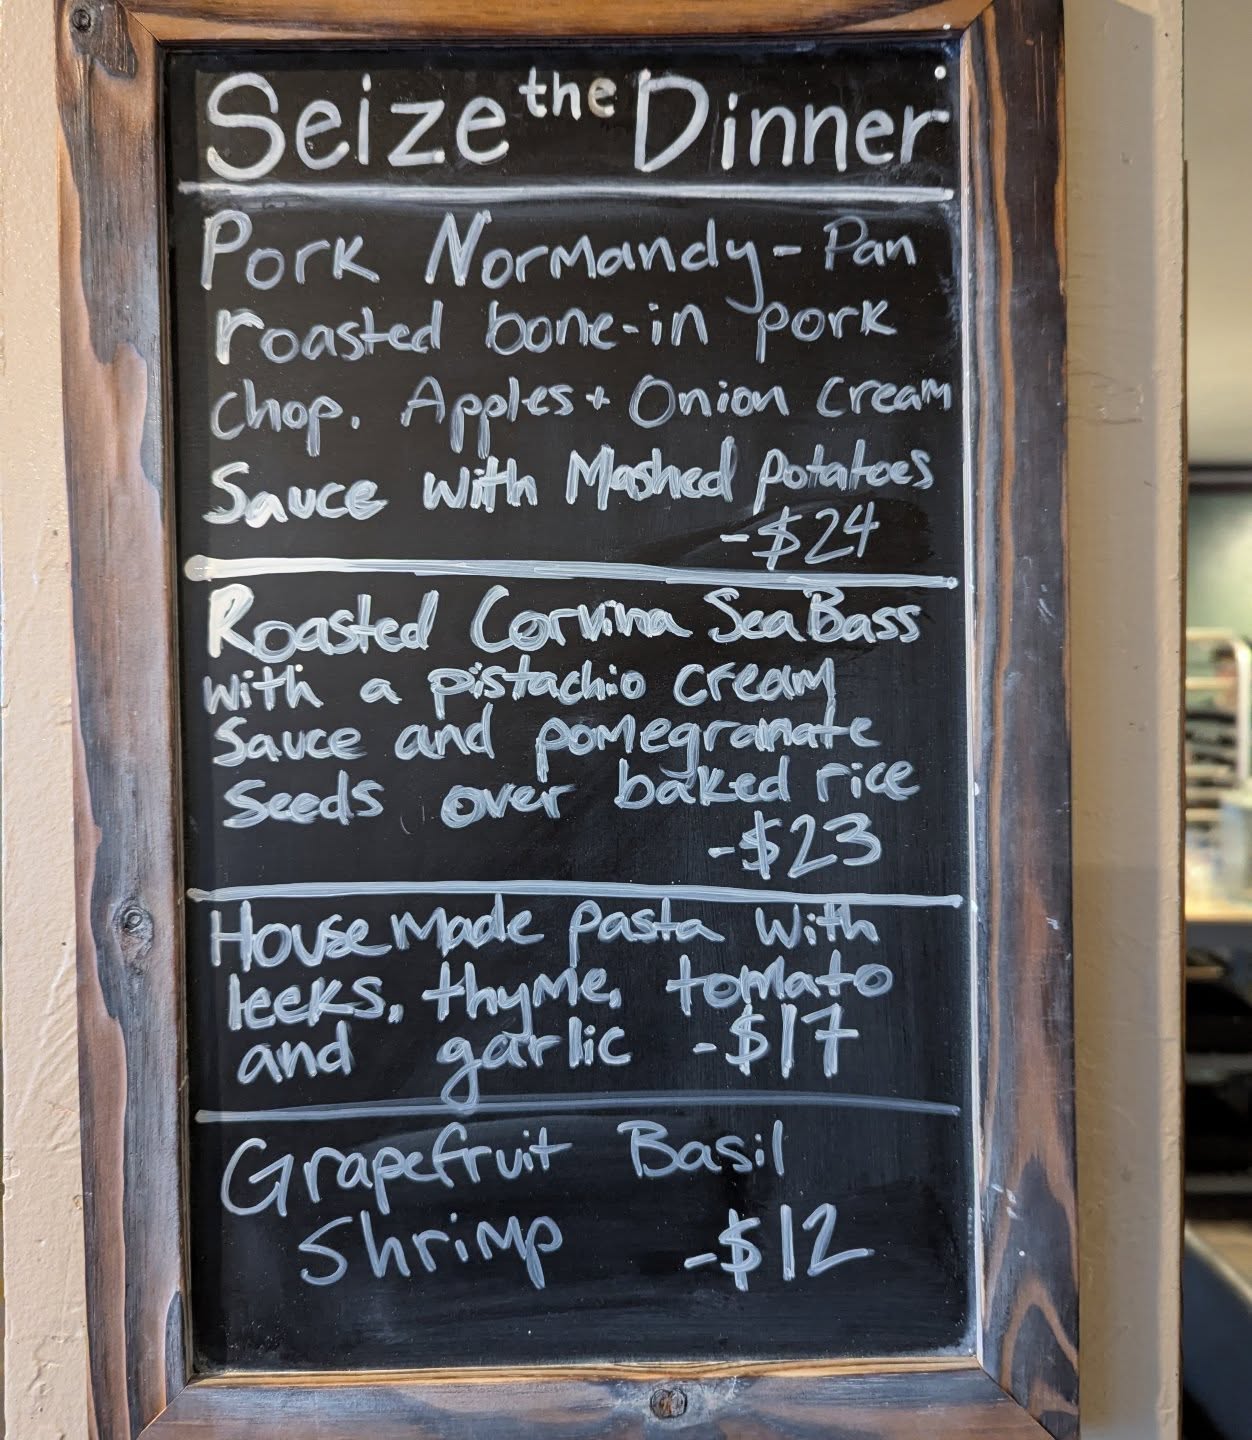 Seize the Dinner
Pork Normandy - Pan
roasted bone-in pork
chop. Apples + Onion cream
Sauce with Mashed potatoes
-$24
Roasted Corvina Sea Bass
with a pistachio cream
Sauce and pomegranate
Seeds over baked rice
-$23
House Made pasta with
leeks, thyme, tomato
and garlic -$17
Grapefruit Basil
Shrimp -$12